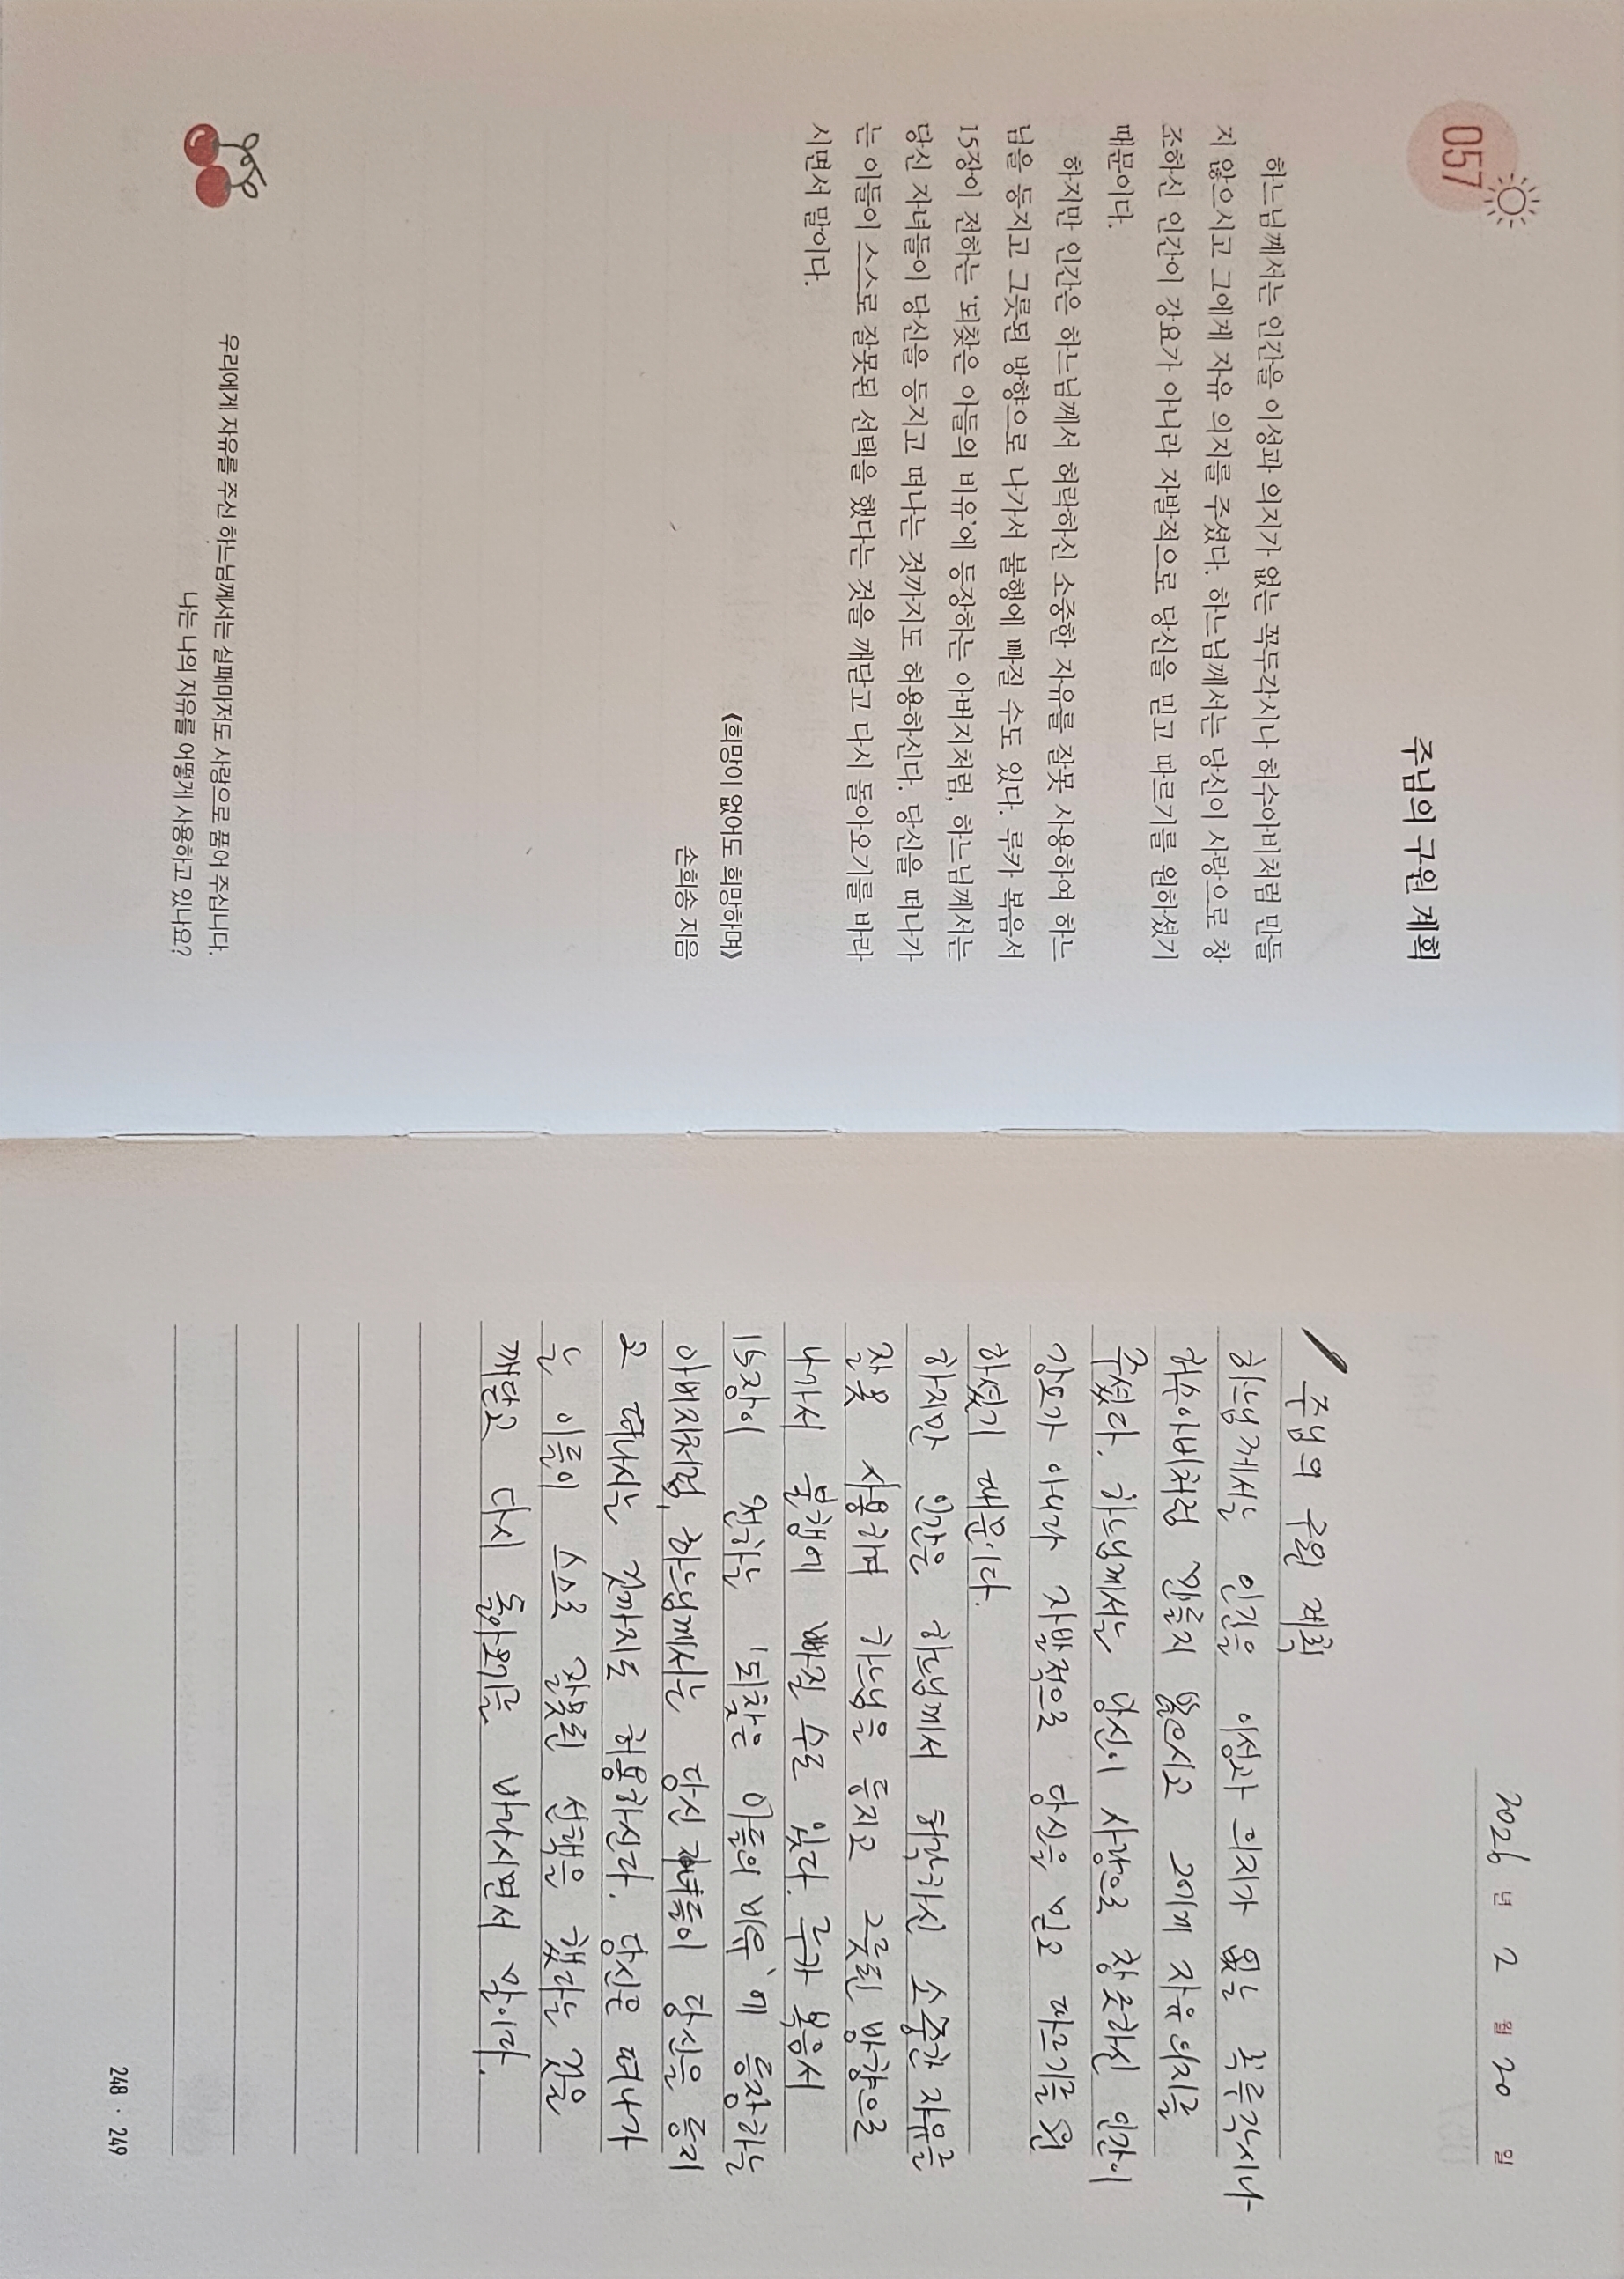 057
주님의 구원 계획
하느님께서는 인간을 이성과 의지가 없는 꼭두각시나 허수아비처럼 만들
지 않으시고 그에게 자유 의지를 주셨다. 하느님께서는 당신이 사랑으로 창
조하신 인간이 강요가 아니라 자발적으로 당신을 믿고 따르기를 원하셨기
때문이다.
하지만 인간은 하느님께서 허락하신 소중한 자유를 잘못 사용하여 하느
님을 등지고 그릇된 방향으로 나가서 불행에 빠질 수도 있다. 루카 복음서
15장이 전하는 '되찾은 아들의 비유'에 등장하는 아버지처럼, 하느님께서는
당신 자녀들이 당신을 등지고 떠나는 것까지도 허용하신다. 당신을 떠나가
는 이들이 스스로 잘못된 선택을 했다는 것을 깨닫고 다시 돌아오기를 바라
시면서 말이다.
《희망이 없어도 희망하며》
손희송 지음
우리에게 자유를 주신 하느님께서는 실패마저도 사랑으로 품어 주십니다.
나는 나의 자유를 어떻게 사용하고 있나요?
2026 년 2 월 20 일
주님의 구원 계획
하느님께서는 인간을 이성과 의지가 없는 꼭두각시나
허수아비처럼 만들지 않으시고 그에게 자유 의지를
주셨다. 하느님께서는 당신이 사랑으로 창조하신 인간이
강요가 아니라 자발적으로 당신을 믿고 따르기를 원
하셨기 때문이다.
하지만 인간은 하느님께서 허락하신 소중한 자유를
잘못 사용하며 하느님을 등지고 그릇된 방향으로
나가서 불행에 빠질 수도 있다. 루카 복음서
15장이 전하는 '되찾은 아들의 비유'에 등장하는
아버지처럼, 하느님께서는 당신 자녀들이 당신을 등지
고 떠나시는 것까지도 허용하신다. 당신은 떠나가
는 이들이 스스로 잘못된 선택을 했다는 것을
깨닫고 다시 돌아오기를 바라시면서 말이다.
248 · 249